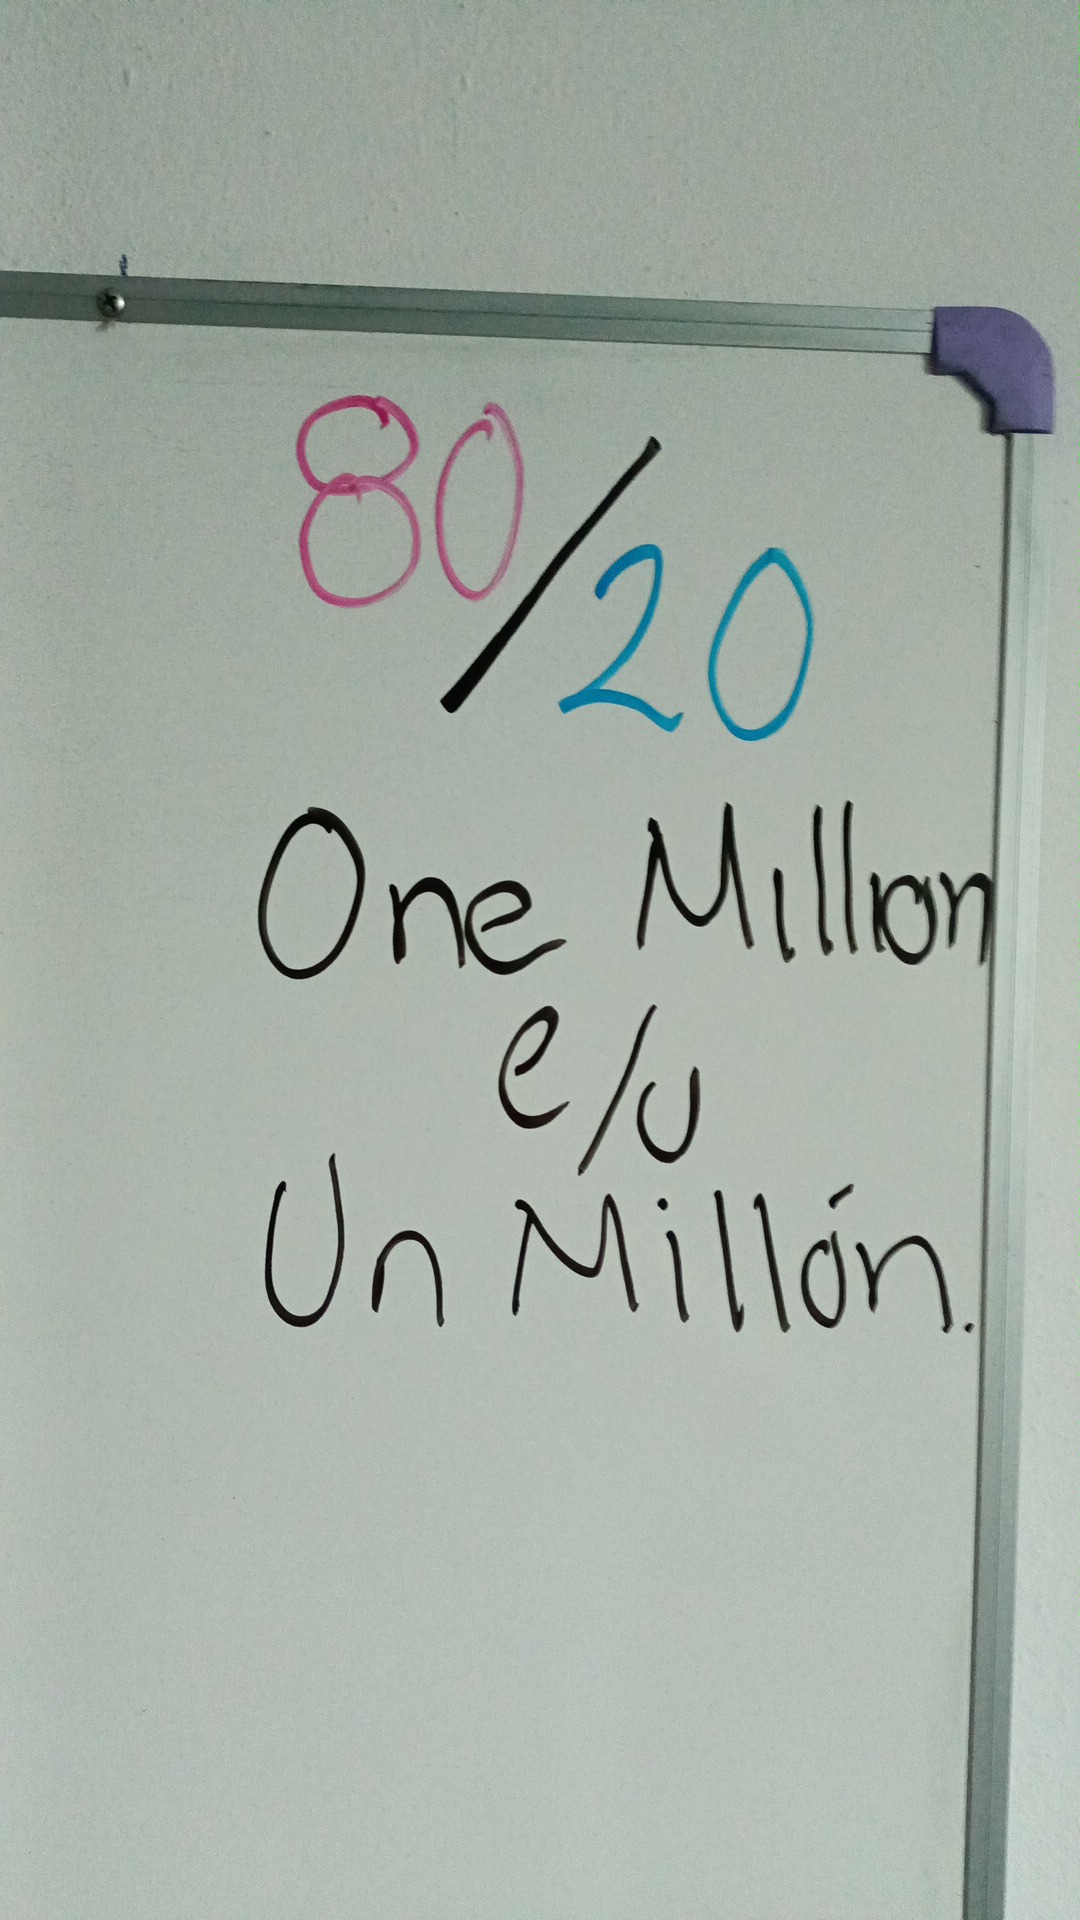 80/20
One Million
e/u
Un Millón.